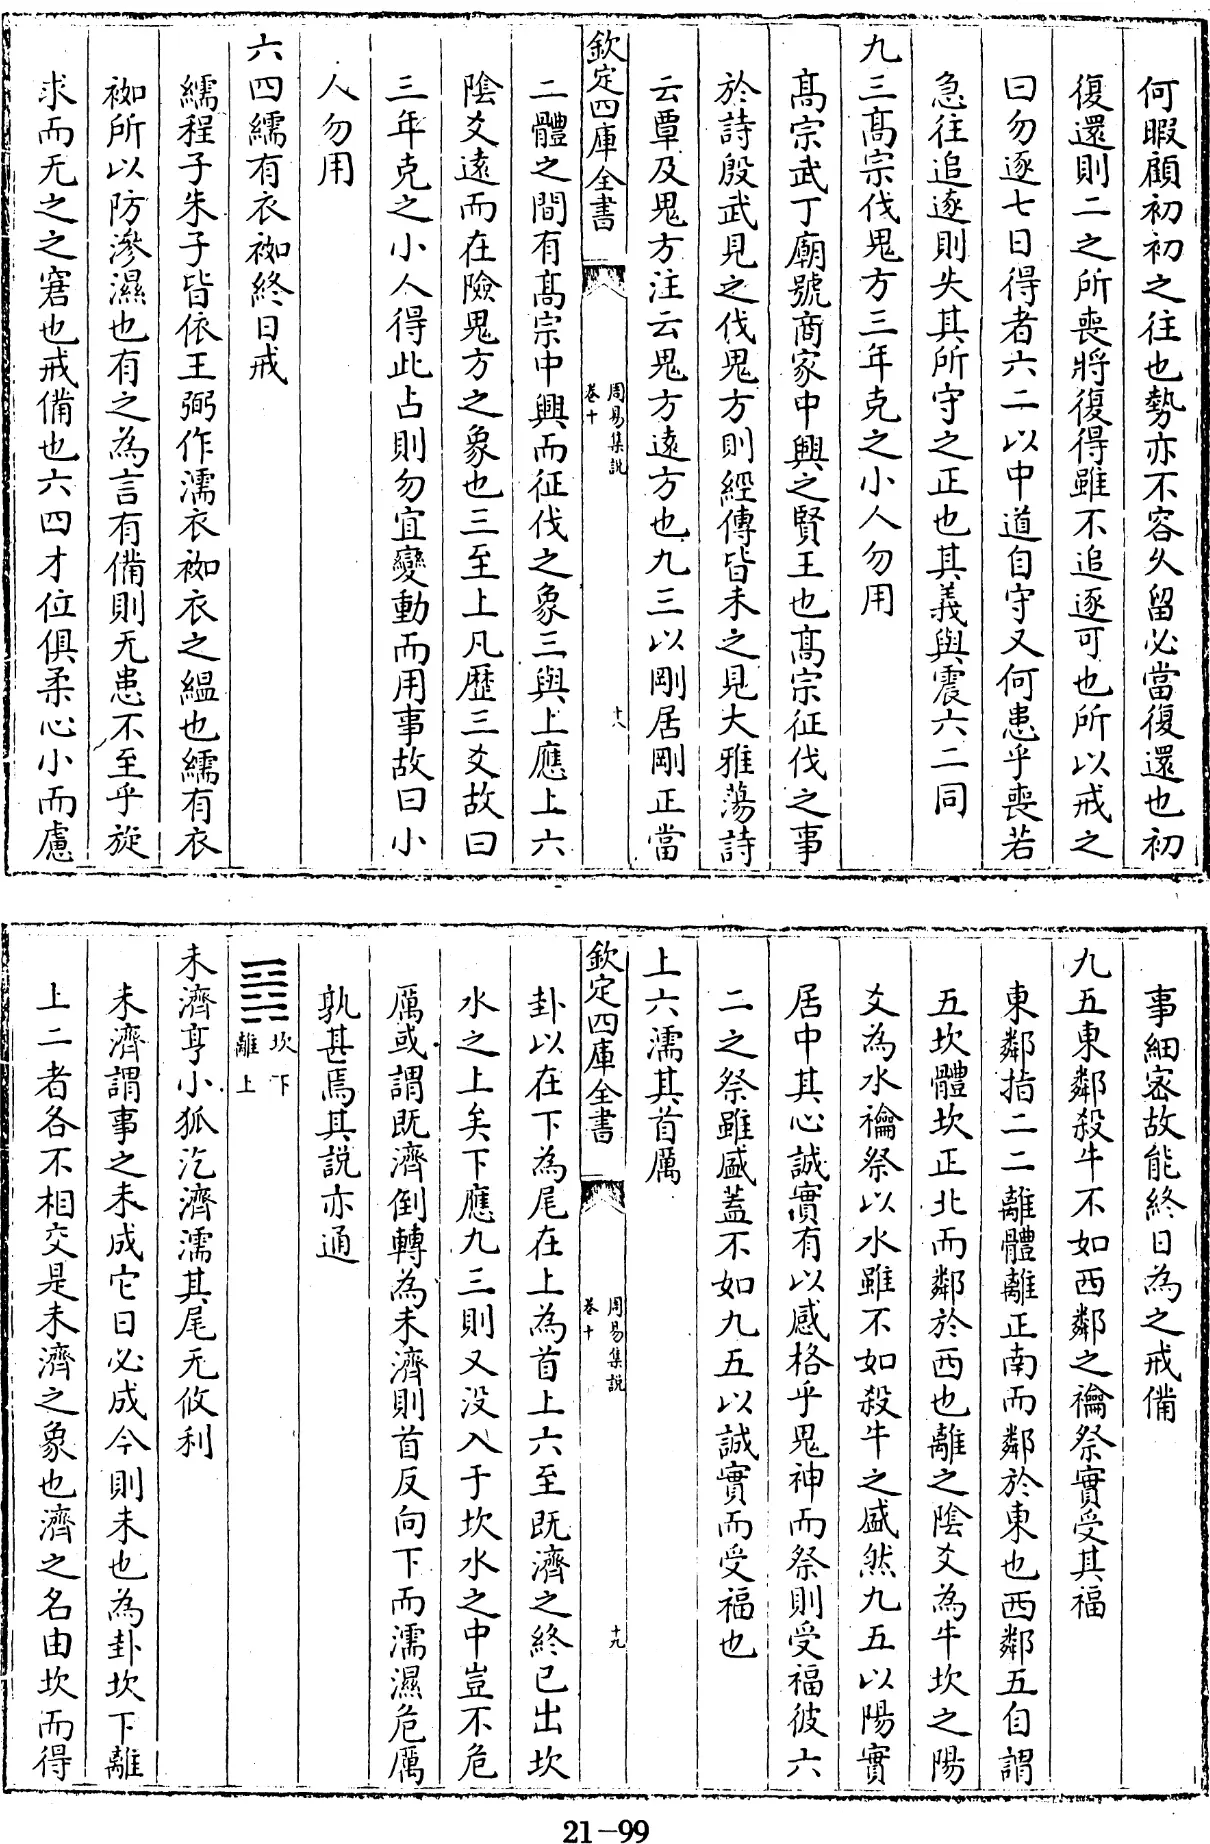 何暇顧初初之往也勢亦不容久留必當復還也初
復還則二之所喪將復得雖不追逐可也所以戒之
曰勿逐七日得者六二以中道自守又何患乎喪若
急往追逐則失其所守之正也其義與震六二同
九三髙宗伐鬼方三年克之小人勿用
髙宗武丁廟號商家中興之賢王也髙宗征伐之事
於詩殷武見之伐鬼方則經傳皆未之見大雅蕩詩
云覃及鬼方注云鬼方逺方也九三以剛居剛正當
欽定四庫全書
周易集説
卷十
十八
二體之間有髙宗中興而征伐之象三與上應上六
陰爻逺而在險鬼方之象也三至上凡歴三爻故曰
三年克之小人得此占則勿宜變動而用事故曰小
人勿用
六四繻有衣袽終日戒
繻程子朱子皆依王弼作濡衣袽衣之緼也繻有衣
袽所以防滲濕也有之為言有備則无患不至乎旋
求而无之之窘也戒備也六四才位俱柔心小而慮
事細宻故能終日為之戒備
九五東鄰殺牛不如西鄰之禴祭實受其福
東鄰指二二離體離正南而鄰於東也西鄰五自謂
五坎體坎正北而鄰於西也離之陰爻為牛坎之陽
爻為水禴祭以水雖不如殺牛之盛然九五以陽實
居中其心誠實有以感格乎鬼神而祭則受福彼六
二之祭雖盛蓋不如九五以誠實而受福也
上六濡其首厲
欽定四庫全書
周易集説
卷十
十九
卦以在下為尾在上為首上六至既濟之終已出坎
水之上矣下應九三則又没入于坎水之中豈不危
厲或謂既濟倒轉為未濟則首反向下而濡濕危厲
孰甚焉其説亦通
䷿
坎下
離上
未濟亨小狐汔濟濡其尾无攸利
未濟謂事之未成它日必成今則未也為卦坎下離
上二者各不相交是未濟之象也濟之名由坎而得
21-99